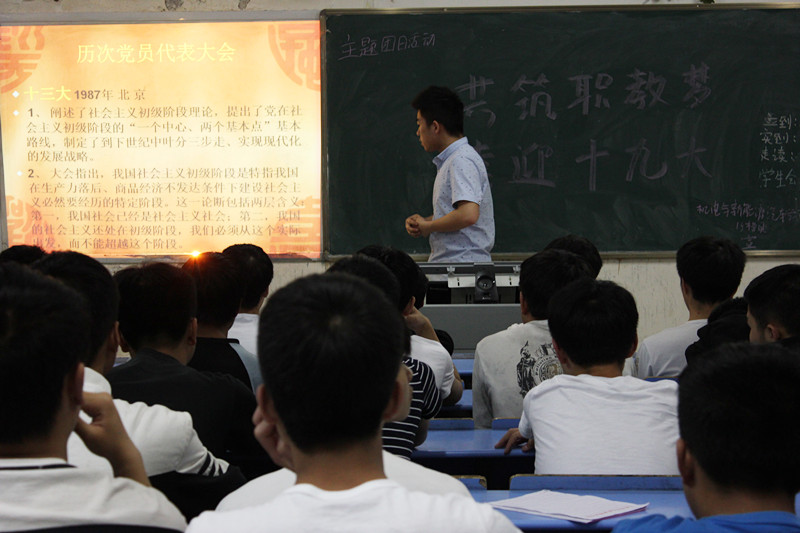 历次党员代表大会
十三大 1987年 北京
1、阐述了社会主义初级阶段理论,提出了党在社
会主义初级阶段的“一个中心、两个基本点”基本
路线,制定了到下世纪中叶分三步走、实现现代化
的发展战略。
2、大会指出,我国社会主义初级阶段是特指我国
在生产力落后、商品经济不发达条件下建设社会主
义必然要经历的特定阶段。这一论断包括两层含义:
第一,我国社会已经是社会主义社会;第二,我国
的社会主义还处在初级阶段,我们必须从这个实际
出发,而不能超越这个阶段。
主题团日活动
共筑职教梦
喜迎十九大
签到:
实到:
走读:
学生会